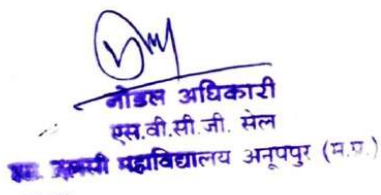 नोडल अधिकारी
एस.वी.सी.जी. सेल
महाविद्यालय अनूपपुर (म.प्र.)